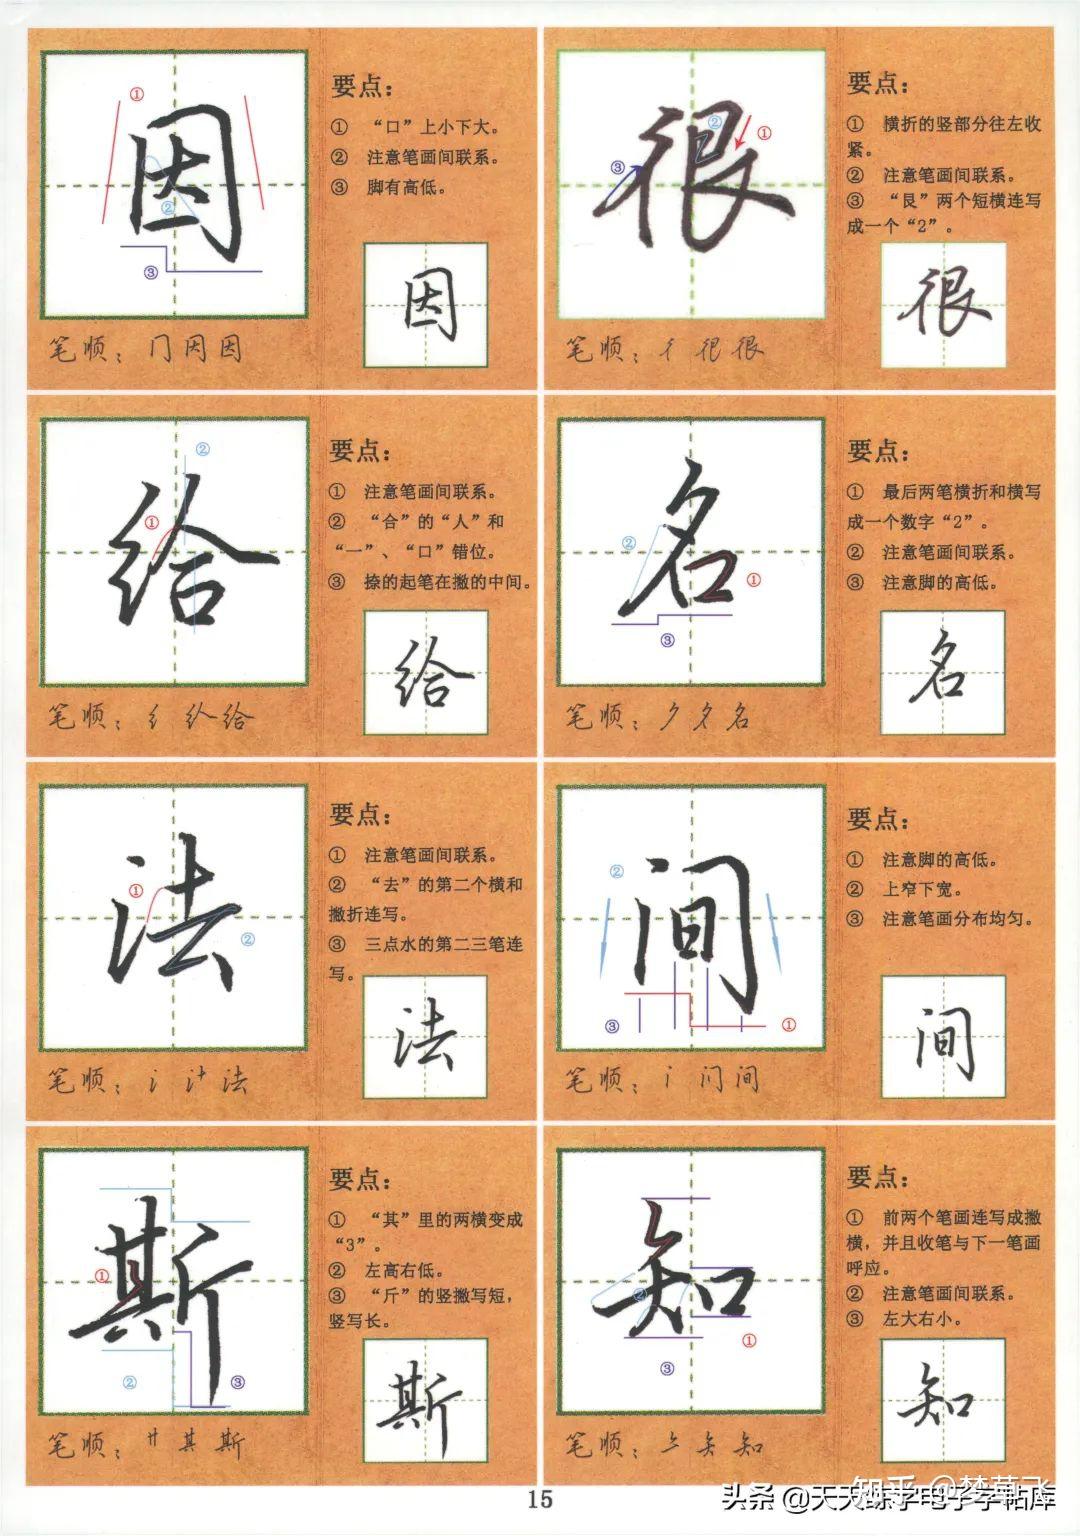 因
要点：
① “口”上小下大。
② 注意笔画间联系。
③ 脚有高低。
因
笔顺：冂 因 因
很
要点：
① 横折的竖部分往左收
紧。
② 注意笔画间联系。
③ “艮”两个短横连写
成一个“2”。
很
笔顺：彳 很 很
给
要点：
① 注意笔画间联系。
② “合”的“人”和
“一”、“口”错位。
③ 捺的起笔在撇的中间。
给
笔顺：纟 给
名
要点：
① 最后两笔横折和横写
成一个数字“2”。
② 注意笔画间联系。
③ 注意脚的高低。
名
笔顺：夕 名
法
要点：
① 注意笔画间联系。
② “去”的第二个横和
撇折连写。
③ 三点水的第二三笔连
写。
法
笔顺：氵 汁 法
间
要点：
① 注意脚的高低。
② 上窄下宽。
③ 注意笔画分布均匀。
间
笔顺：门 间
斯
要点：
① “其”里的两横变成
“3”。
② 左高右低。
③ “斤”的竖撇写短，
竖写长。
斯
笔顺：艹 其 斯
知
要点：
① 前两个笔画连写成撇
横，并且收笔与下一笔画
呼应。
② 注意笔画间联系。
③ 左大右小。
知
笔顺：矢 知
15
知乎 @梦草飞
头条 @天天练字电子字帖库